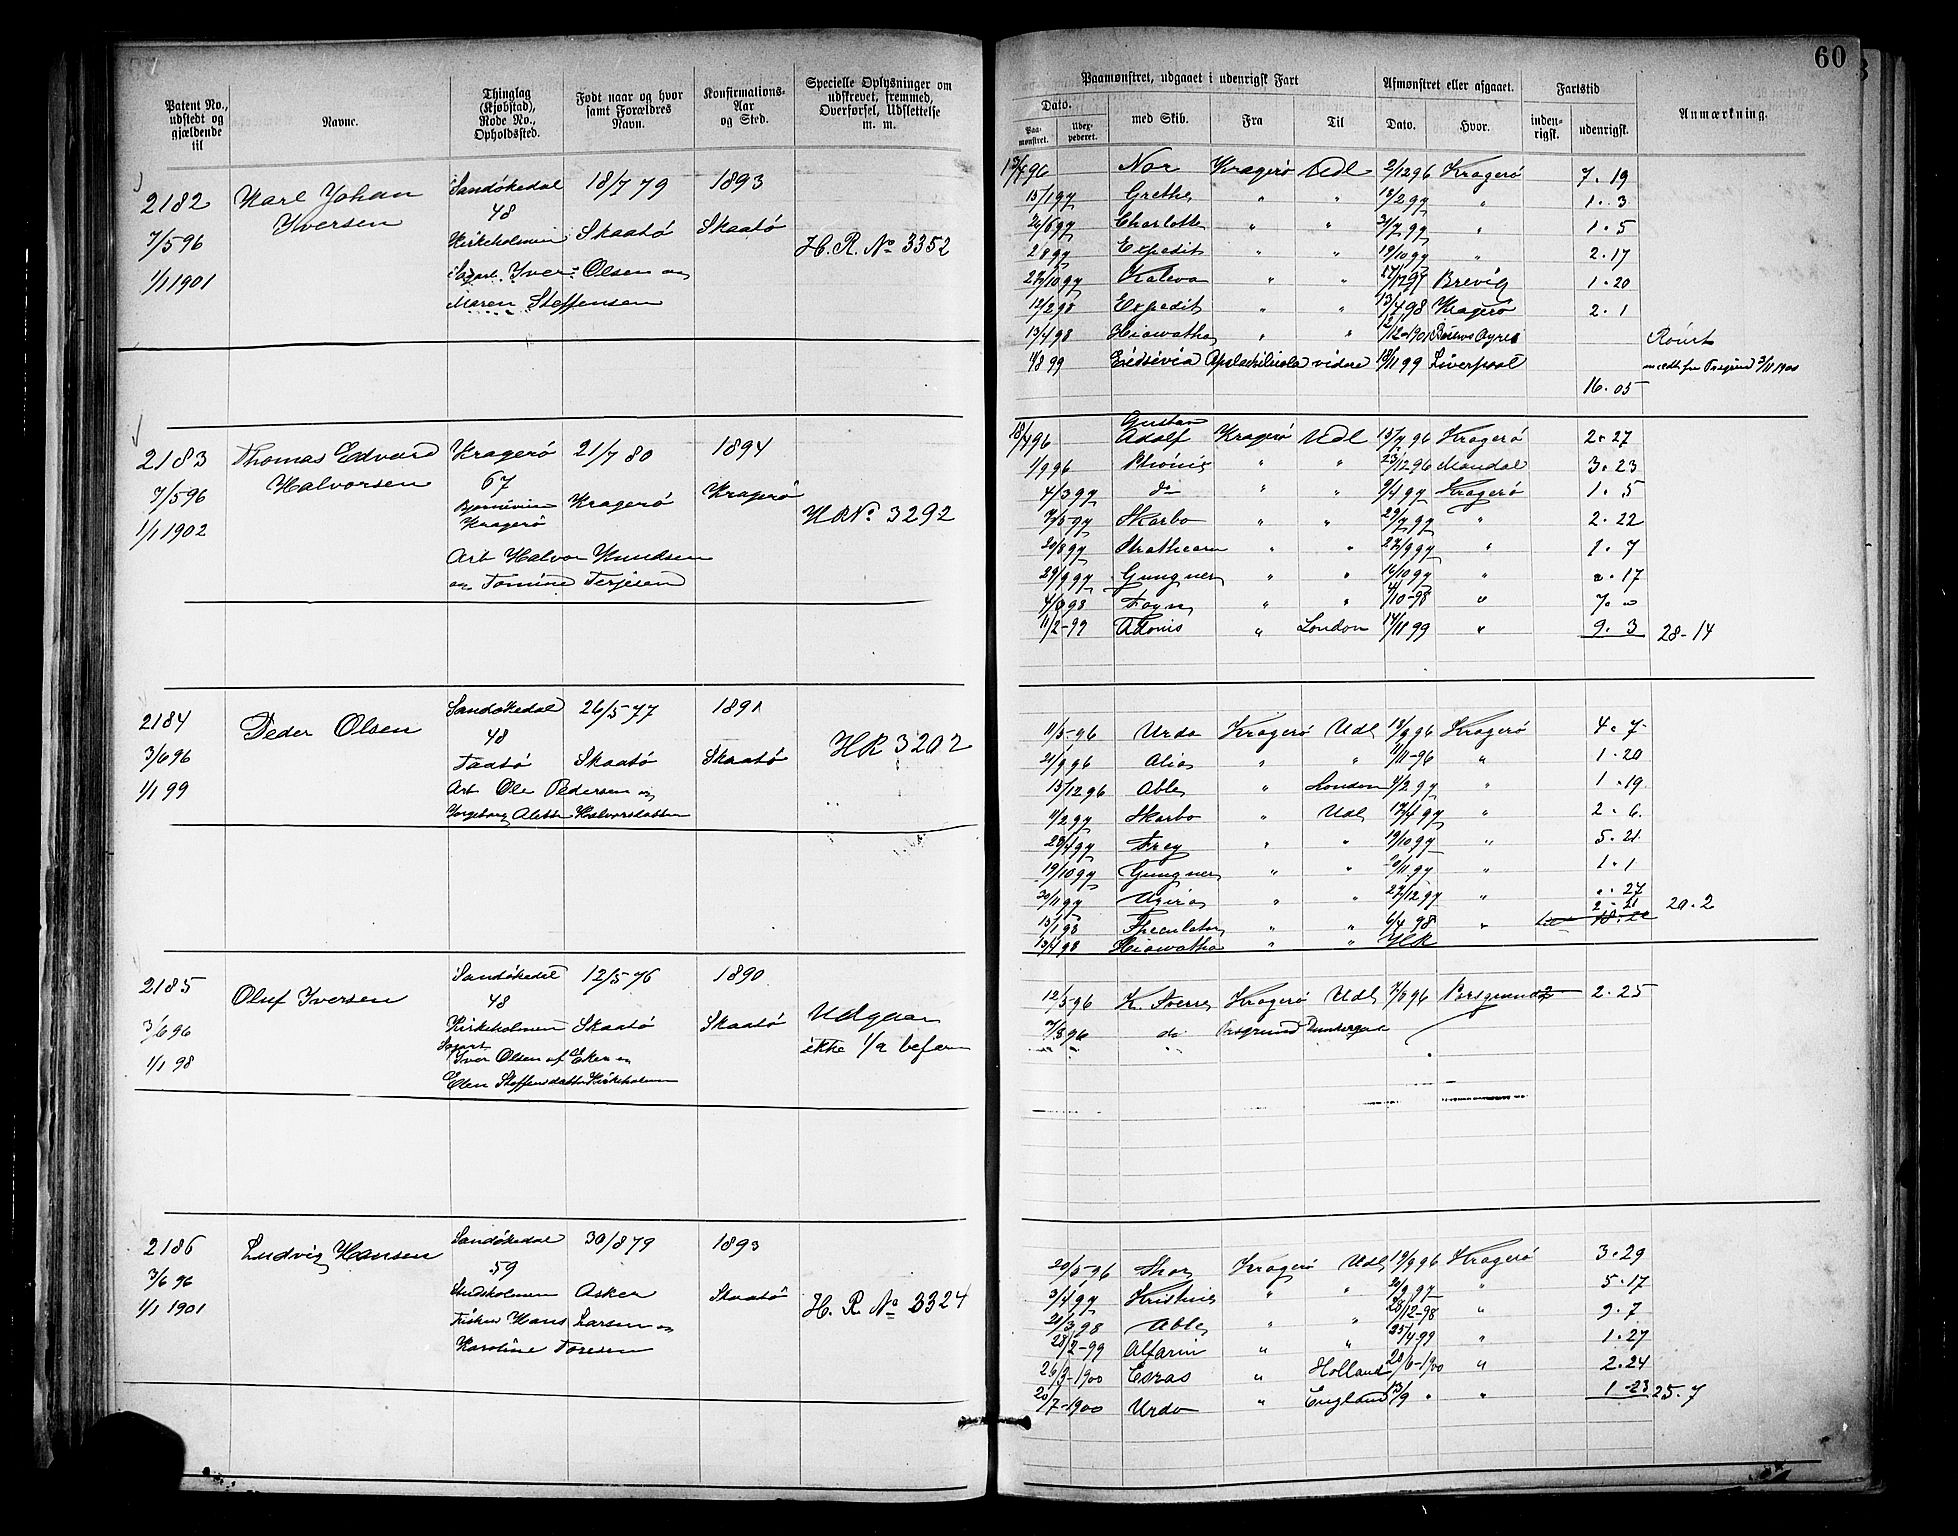 60
Patent No., udstedt og gjældende til
Navne.
Thinglag (Kjøbstad), Rode No., Opholdssted.
Født naar og hvor samt Forældres Navn.
Konfirmations-Aar og Sted.
Specielle Oplysninger om udskrevet, fremmed, Overførsel, Udslettelse m. m.
Paamønstret, udgaaet i udenrigsk Fart
Afmønstret eller afgaaet.
Fartstid
Anmærkning.
Dato.
Paamønstret.
Udexpederet.
med Skib.
Fra
Til
Dato.
Hvor.
indenrigsk.
udenrigsk.
2182 Karl Johan Iversen
7/5 96
1/1 1901
Sandøkedal 18/7 79 1893
48
Kirkeholmen Skaatø Skaatø
H. R. No 3352
Iver Olsen og
Maren Steffensen
13/4 96 Nor Kragerø Udl 2/12 96 Kragerø 7. 19
15/1 97 Grethe " " 18/2 97 " 1. 3
26/5 97 Charlotte " " 31/7 97 " 1. 5
2/8 97 Expedit " " 19/10 97 " 2. 17
27/10 97 Kaleva " " 17/12 97 Brevig 1. 20
12/2 98 Expedit " " 13/4 98 Kragerø 2. 1
13/4 98 Hiawatha " " Buenos Ayres Rømt
4/8 99 Apalachicola videre 18/11 99 Liverpool
16. 05
2183 Thomas Edvard Halvorsen
7/5 96
1/1 1902
Kragerø 21/7 80 1894
67
Kragerø Kragerø Kragerø
HR No. 3292
Arb Halvor Knudsen
og Tomine Terjesen
18/4 96 Gustav Adolf Kragerø Udl 15/7 96 Kragerø 2. 27
1/9 96 Phønix " " 23/12 96 Mandal 3. 23
4/3 97 do " " 9/4 97 Kragerø 1. 5
7/5 97 Skarbo " " 29/7 97 " 2. 22
20/8 97 Strathearn " " 27/9 97 " 1. 7
29/9 97 Gungner " " 16/10 97 " ". 17
Foyn " " 4/10-98 " 7. "
11/2-99 Adonis " London 14/11 99 " 9. 3 28-14
2184 Peder Olsen
3/6 96
1/1 99
Sandøkedal 26/5 77 1891
48
Taatø Skaatø Skaatø
HR 3202
Arb Ole Pedersen og
Ingeborg Alette Halvorsdatter
11/5-96 Urda Kragerø Udl 18/9 96 Kragerø 4. 7
21/9 96 Alice " " 11/11-96 " 1. 20
15/12 96 Able " London 4/2 97 " 1. 19
11/2 97 Skarbo " Udl 17/4 97 " 2. 6.
28/4 97 Frey " " 19/10 97 " 5. 21
19/10 97 Gungner " " 20/11 97 " 1. 1
30/11 97 " " 27/12 97 " ". 27
15/1 98 Speculator " " 6/4 98 " 2. 21 20. 2
13/4 98 Hiawatha " " HR
2185 Oluf Iversen
3/6 96
1/1 98
Sandøkedal 12/5 76 1890
48
Kirkeholmen Skaatø Skaatø
Udgaar
ikke 1/2 befaren
Iver Olsen af Eker og
Elen Steffensdatter Kirkeholmen
12/5-96 K. Sverre Kragerø Udl 7/8 96 Porsgrund 2. 25
7/8 96 do. Porsgrund Dunkerque
2186 Ludvig Hansen
3/6 96
1/1 1901
Sandøkedal 30/8 79 1893
59
Asker Skaatø
H. R. No 3324
Fisker Hans Larsen og
Karoline Toresen
20/5-96 Thor Kragerø Udl 19/9 96 Kragerø 3. 29
3/4 97 Kristine " " 20/9 97 " 5. 17
21/3 98 Able " " 28/12-98 " 9. 7
28/2-99 Alfarin " " 25/4-99 " 1. 27
26/3-1900 Esras " Holland 20/6-1900 " 2. 24
20/7-1900 Urda " England 13/9 " " 1-23 25. 7